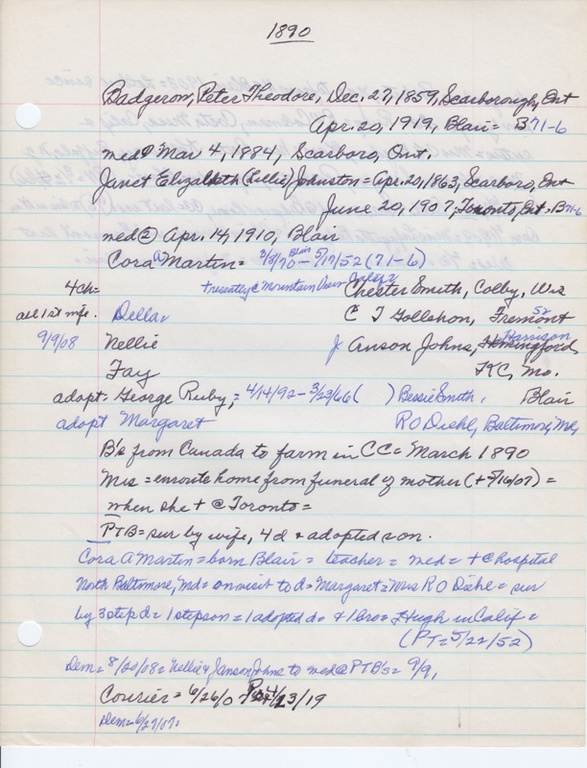 1890
Badgerow, Peter Theodore, Dec. 27, 1859, Scarborough, Ont
Apr. 20, 1919, Blair = B71-6
med ① Mar 4, 1884, Scarboro, Ont.
Janet Elizabeth (Nellie) Johnston = Apr. 20, 1863, Scarboro, Ont
June 20, 1907, Toronto, Ont. B71-6
med ② Apr. 14, 1910, Blair
Cora A Martin = 3/8/70 Blair - 5/17/52 (71-6)
+ services @ Mountain View
4 ch = Chester Smith, Colby, Wis
all 1st wife. Della = C J Gollehon, Fremont 52
9/9/08 Nellie J Anson Johns, Harrison
Fay KC, Mo.
adopt = George Ruby, = 4/14/92 - 3/23/66 ( ) Bessie Smith, Blair
adopt Margaret R O Diehl, Baltimore, Md,
B's from Canada to farm in CC = March 1890
Mrs = enroute home from funeral of mother (+ 5/16/07) =
when she + @ Toronto =
PTB = sur by wife, 4 d + adopted son.
Cora A Martin = born Blair = teacher = med = + @ hospital
North Baltimore, Md = on visit to d = Margaret = Mrs R O Diehl = sur
by 3 step d = 1 stepson = 1 adopted d = + 1 bro = Hugh in Calif =
(PT = 5/22/52)
Dem = 8/20/08 = Nellie & J Anson Johns to med @ PTB's = 9/9,
Courier = 6/26/07 4/23/19
Dem = 6/27/07 =